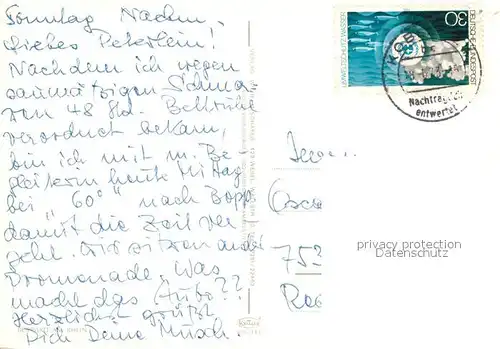 Sonntag Nachm.
Liebes Peterlein!
Nachdem ich wegen
saumäßigen Schmer-
zen 48 Std. Bettruhe
verordnet bekam,
bin ich mit m. Be-
gleiterin heute Mittag
bei "60°" nach Bopp.
damit die Zeit ver-
geht. Wir sitzen an der
Promenade. Was
macht das Auto??
Herzlichst grüßt
Dich Deine Musch
UMWELTSCHUTZ: WASSER
DEUTSCHE BUNDESPOST
30
Nachträglich
entwertet
Herrn
753
privacy protection
Datenschutz